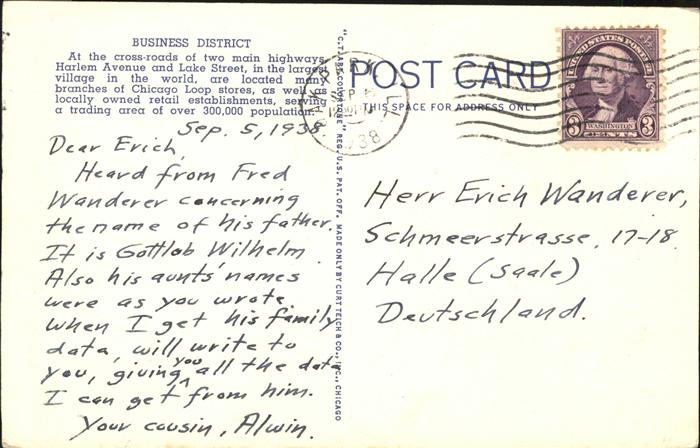 BUSINESS DISTRICT
At the cross-roads of two main highways,
Harlem Avenue and Lake Street, in the largest
village in the world, are located many
branches of Chicago Loop stores, as well as
locally owned retail establishments, serving
a trading area of over 300,000 population.
Sep. 5, 1938
Dear Erich,
Heard from Fred
Wanderer concerning
the name of his father.
It is Gottlob Wilhelm
Also his aunts' names
were as you wrote.
When I get his family
data, will write to
you, giving you all the data
I can get from him.
Your cousin, Alwin.
"C.T. ART-COLORTONE" REG. U.S. PAT. OFF. MADE ONLY BY CURT TEICH & CO., INC., CHICAGO
POST CARD
THIS SPACE FOR ADDRESS ONLY
SEP
1938
UNITED STATES POSTAGE
3 WASHINGTON 3
CENTS
Herr Erich Wanderer,
Schmeerstrasse, 17-18
Halle (Saale)
Deutschland.